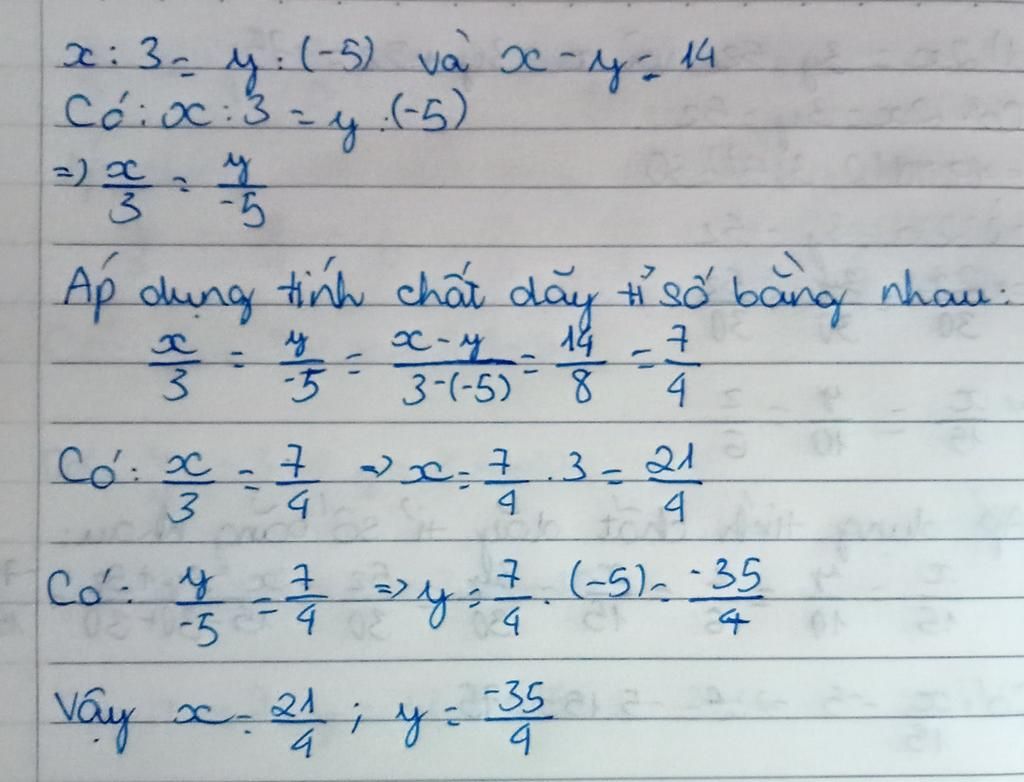 x : 3 = y : (-5) và x - y = 14
Có: x : 3 = y : (-5)
=> x/3 = y/-5
Áp dụng tính chất dãy tỉ số bằng nhau:
x/3 = y/-5 = x - y/3-(-5) = 14/8 = 7/4
Có: x/3 = 7/4 => x = 7/4 . 3 = 21/4
Có: y/-5 = 7/4 => y = 7/4 . (-5) = -35/4
Vậy x = 21/4 ; y = -35/4